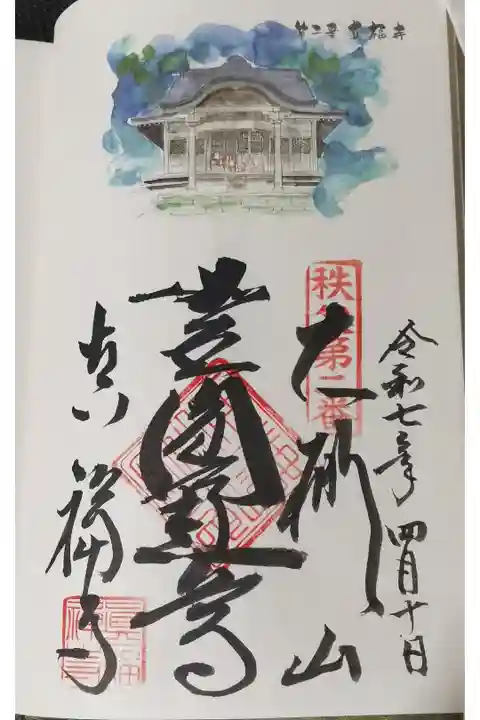 第二番 真福寺
令和七年 四月十日
秩父第二番
大棚山
聖観世音
真福寺
真福寺